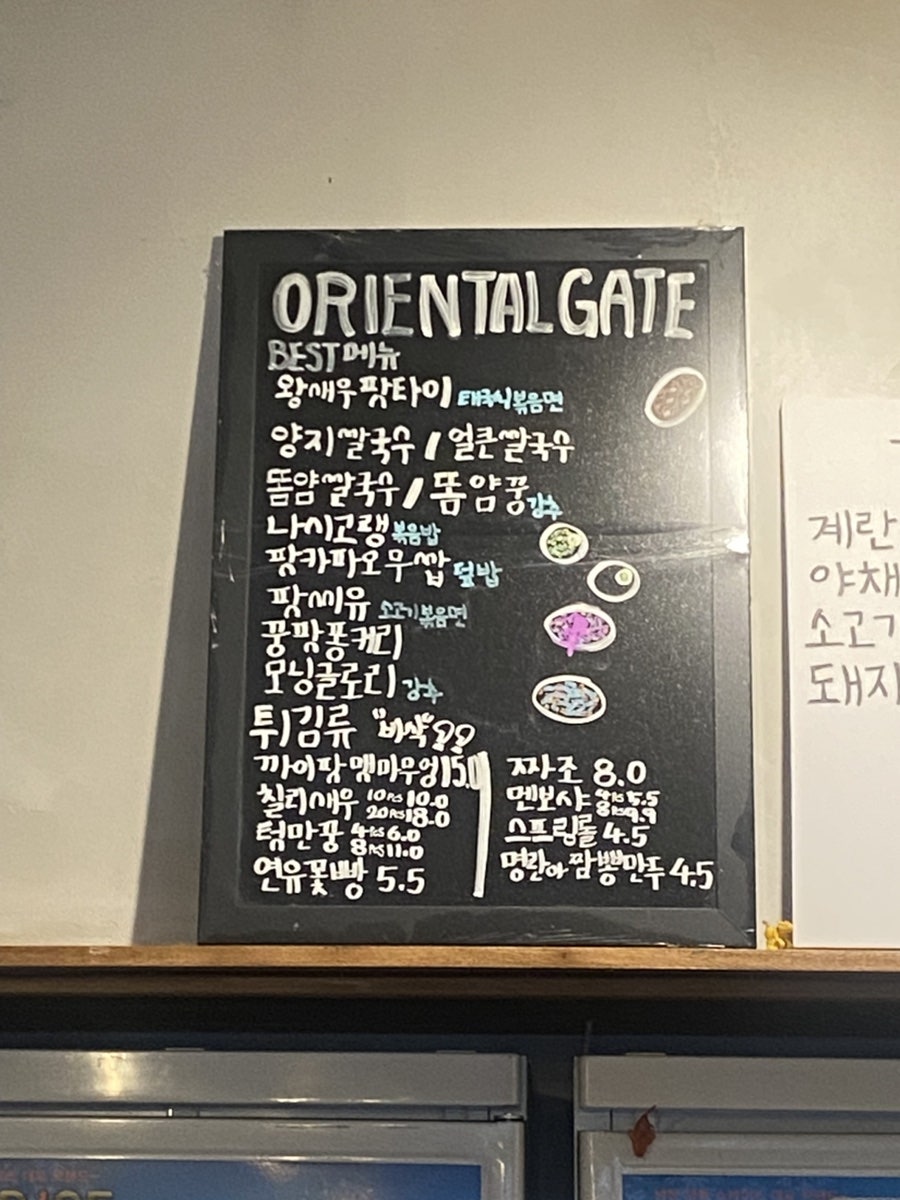 ORIENTAL GATE
BEST 메뉴
왕새우팟타이 태국식볶음면
양지쌀국수 / 얼큰쌀국수
똠얌쌀국수 / 똠얌꿍 강추
나시고랭 볶음밥
팟카파오무쌉 덮밥
팟씨유 소고기볶음면
뿡팟퐁커리
모닝글로리 강추
튀김류 "바삭"
까이팟멧마무엉 15.0
칠리새우 10PCS 10.0
20PCS 18.0
텃만꿍 4PCS 6.0
8PCS 11.0
연유꽃빵 5.5
짜조 8.0
멘보샤 4PCS 5.5
8PCS 9.9
스프링롤 4.5
명란아 짬뽕만두 4.5
계란
야채
소고기
돼지